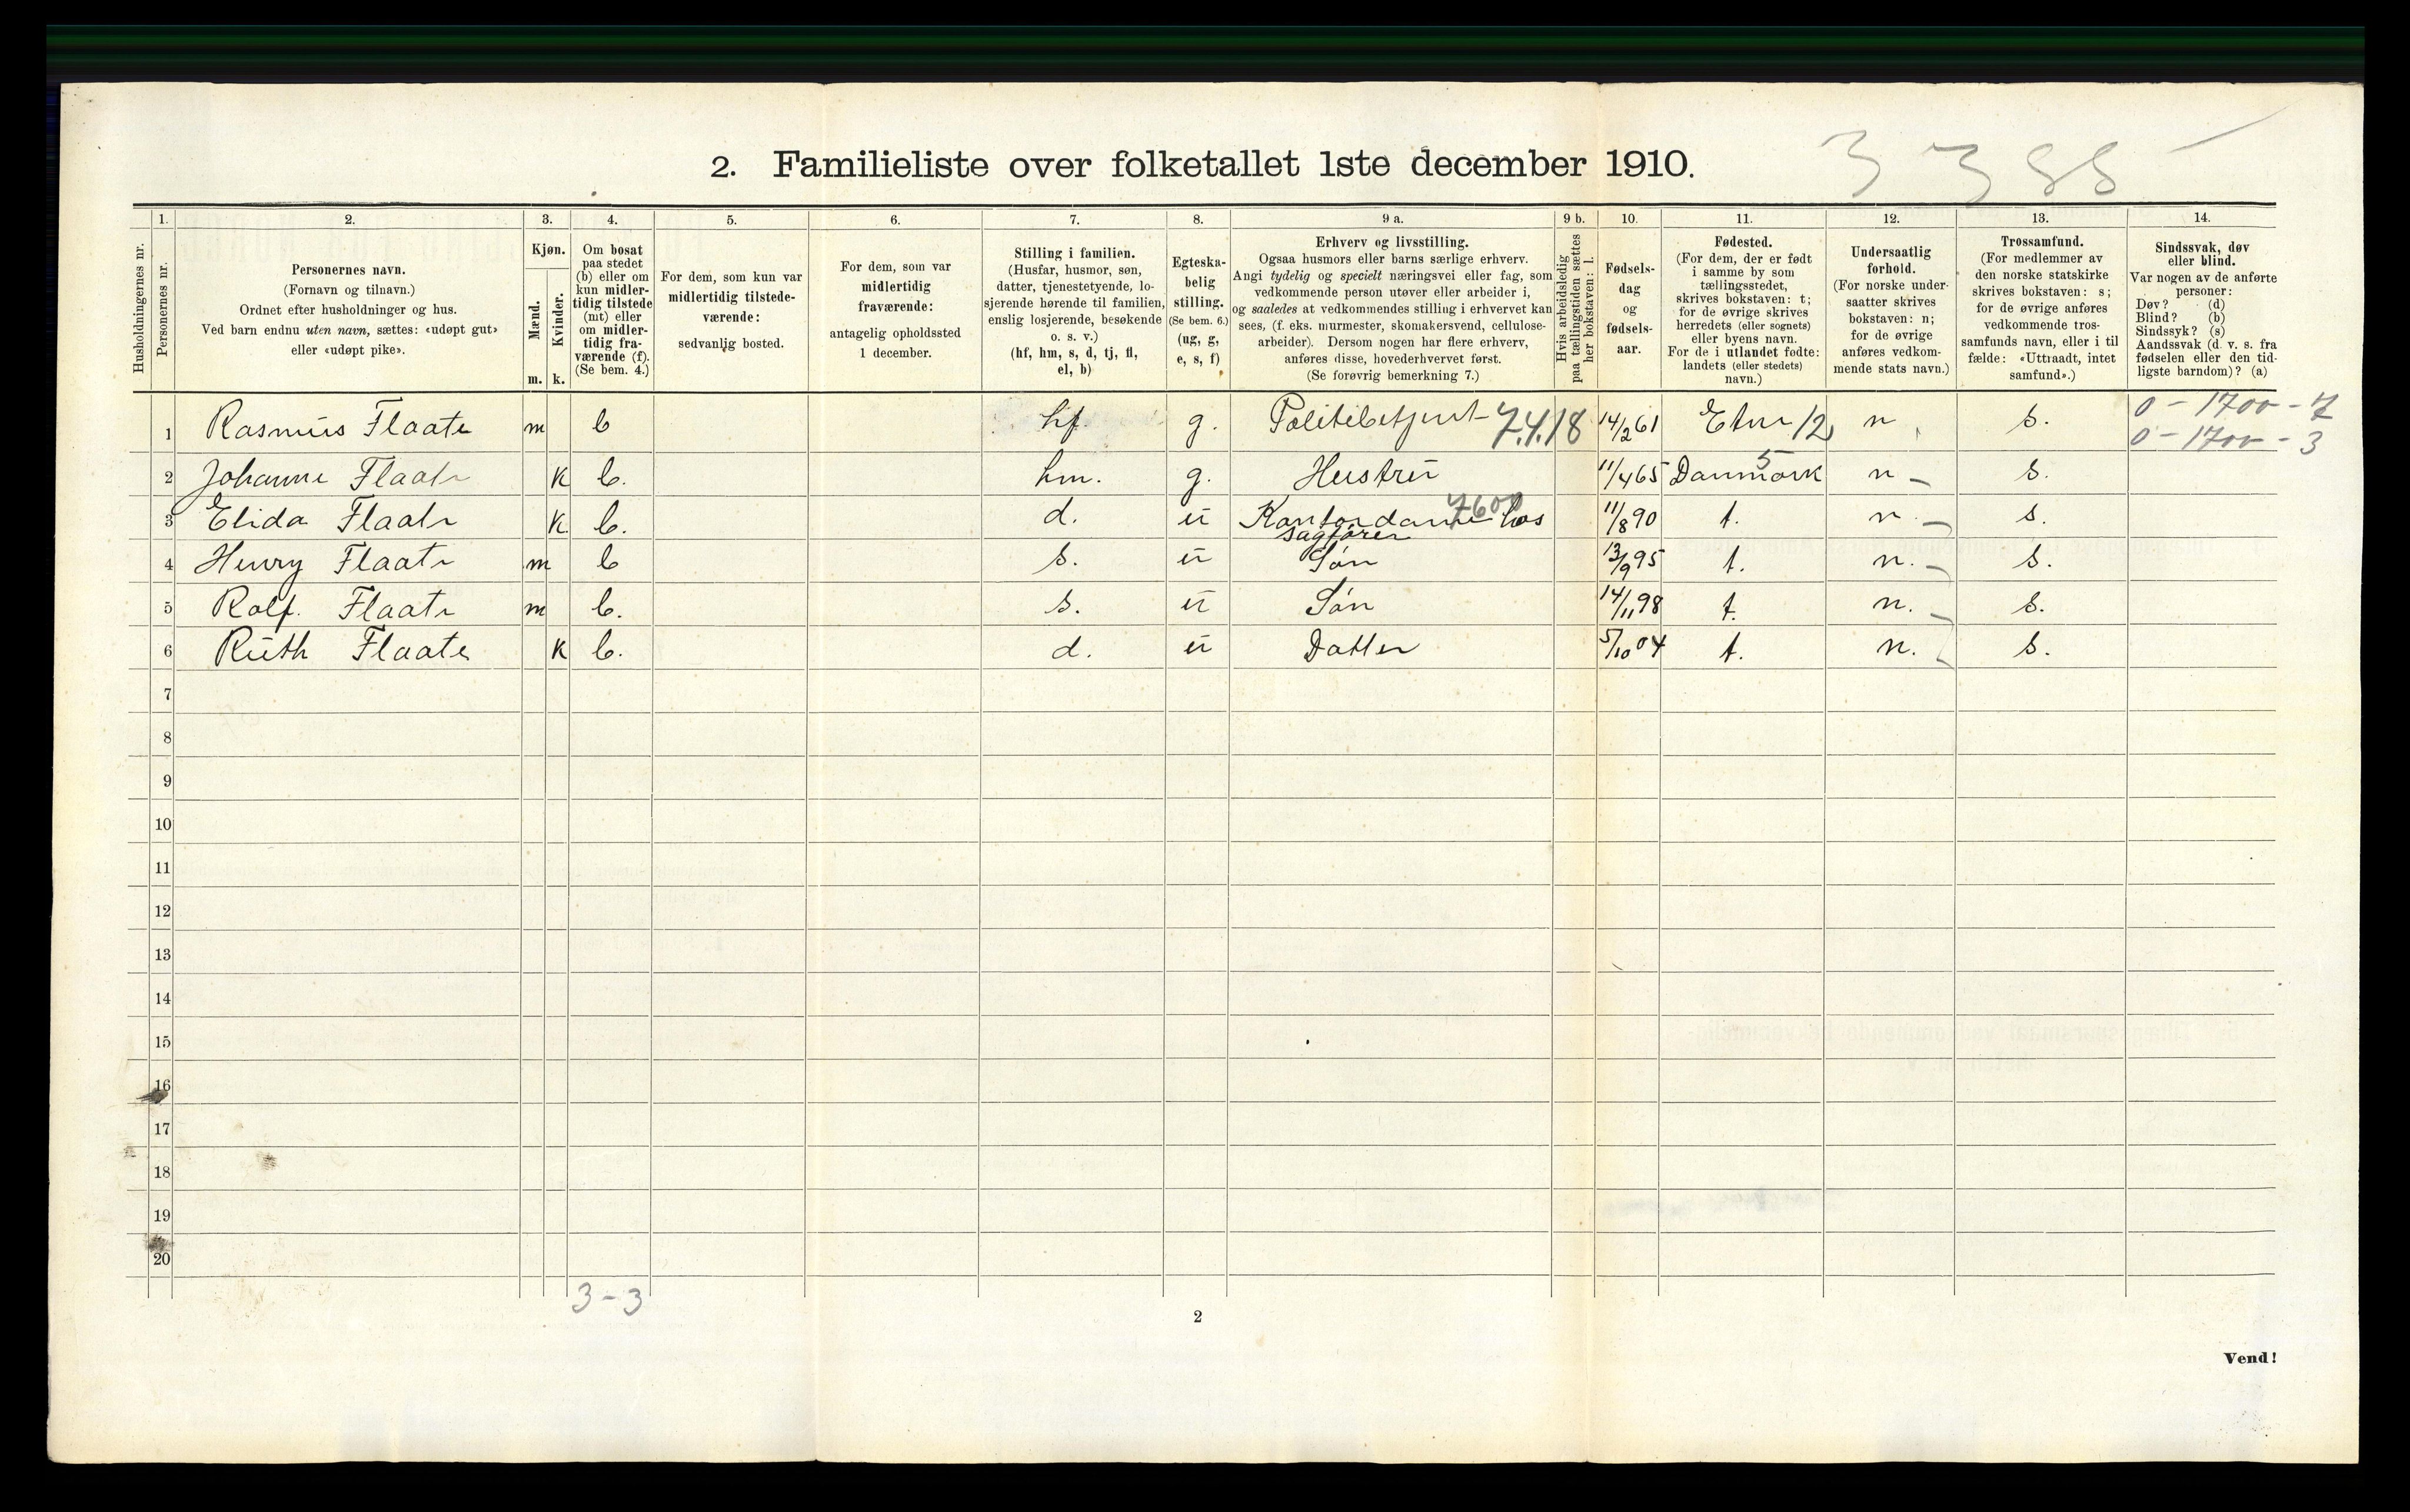 3 3 88
2. Familieliste over folketallet 1ste december 1910.
1. 2. 3. 4. 5. 6. 7. 8. 9 a. 9 b. 10. 11. 12. 13. 14.
Husholdningernes nr.
Personernes nr.
Personernes navn.
(Fornavn og tilnavn.)
Ordnet efter husholdninger og hus.
Ved barn endnu uten navn, sættes: «udøpt gut»
eller «udøpt pike».
Kjøn.
Mænd.
Kvinder.
m. k.
Om bosat
paa stedet
(b) eller om
kun midler-
tidig tilstede
(mt) eller
om midler-
tidig fra-
værende (f).
(Se bem. 4.)
For dem, som kun var
midlertidig tilstede-
værende:
sedvanlig bosted.
For dem, som var
midlertidig
fraværende:
antagelig opholdssted
1 december.
Stilling i familien.
(Husfar, husmor, søn,
datter, tjenestetyende, lo-
sjerende hørende til familien,
enslig losjerende, besøkende
o. s. v.)
(hf, hm, s, d, tj, fl,
el, b)
Egteska-
belig
stilling.
(Se bem. 6.)
(ug, g,
e, s, f)
Erhverv og livsstilling.
Ogsaa husmors eller barns særlige erhverv.
Angi tydelig og specielt næringsvei eller fag, som
vedkommende person utøver eller arbeider i,
og saaledes at vedkommendes stilling i erhvervet kan
sees, (f. eks. murmester, skomakersvend, cellulose-
arbeider). Dersom nogen har flere erhverv,
anføres disse, hovederhvervet først.
(Se forøvrig bemerkning 7.)
Hvis arbeidsledig
paa tællingstiden sættes
her bokstaven: l.
Fødsels-
dag
og
fødsels-
aar.
Fødested.
(For dem, der er født
i samme by som
tællingsstedet,
skrives bokstaven: t;
for de øvrige skrives
herredets (eller sognets)
eller byens navn.
For de i utlandet fødte:
landets (eller stedets)
navn.)
Undersaatlig
forhold.
(For norske under-
saatter skrives
bokstaven: n;
for de øvrige
anføres vedkom-
mende stats navn.)
Trossamfund.
(For medlemmer av
den norske statskirke
skrives bokstaven: s;
for de øvrige anføres
vedkommende tros-
samfunds navn, eller i til
fælde: «Uttraadt, intet
samfund».)
Sindssvak, døv
eller blind.
Var nogen av de anførte
personer:
Døv? (d)
Blind? (b)
Sindssyk? (s)
Aandssvak (d. v. s. fra
fødselen eller den tid-
ligste barndom)? (a)
1 Rasmus Flaate m b hf. g. Politibetjent 7.4.18 14/2 61 Etne 12 n s. 0 - 1700 - 7
0 - 1700 - 3
2 Johanne Flaate k b. hm. g. Hustru 11/4 65 Danmark 5 n s.
3 Elida Flaate k. b. d. u Kontordame hos 7600 11/8 90 t. n. s.
sagfører
4 Henry Flaate m b s. u Søn 13/9 95 t. n. s.
5 Rolf. Flaate m b. s. u Søn 14/11 98 t. n. s.
6 Ruth Flaate k b. d. u Datter 5/10 04 t. n. s.
7
8
9
10
11
12
13
14
15
16
17
18
19
20
3 - 3
2
Vend!